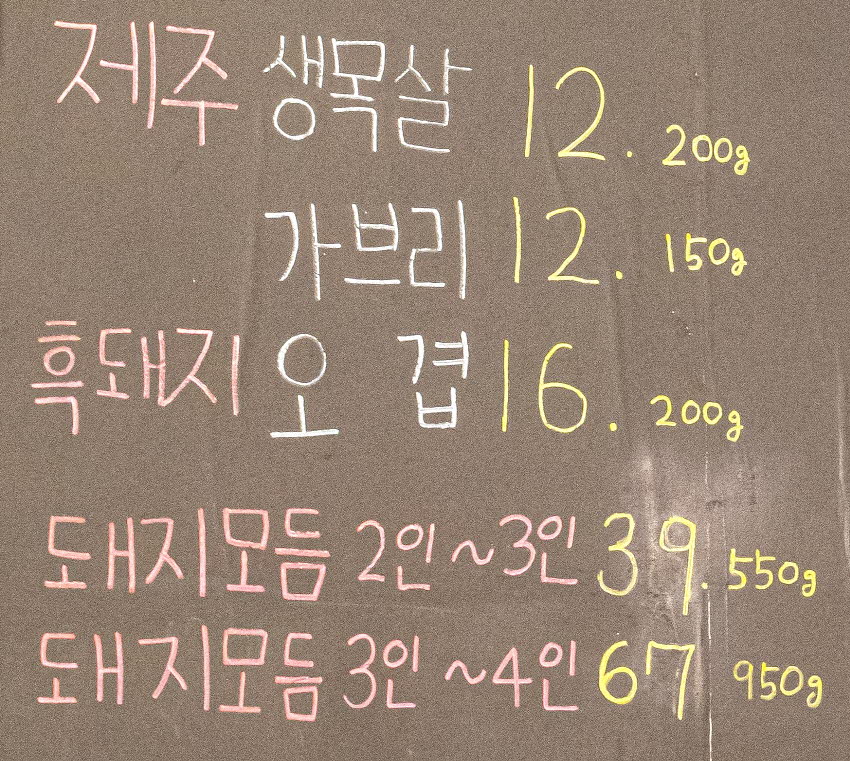 제주 생목살 12. 200g
가브리 12. 150g
흑돼지 오겹 16. 200g
돼지모듬 2인~3인 39. 550g
돼지모듬 3인~4인 67 950g